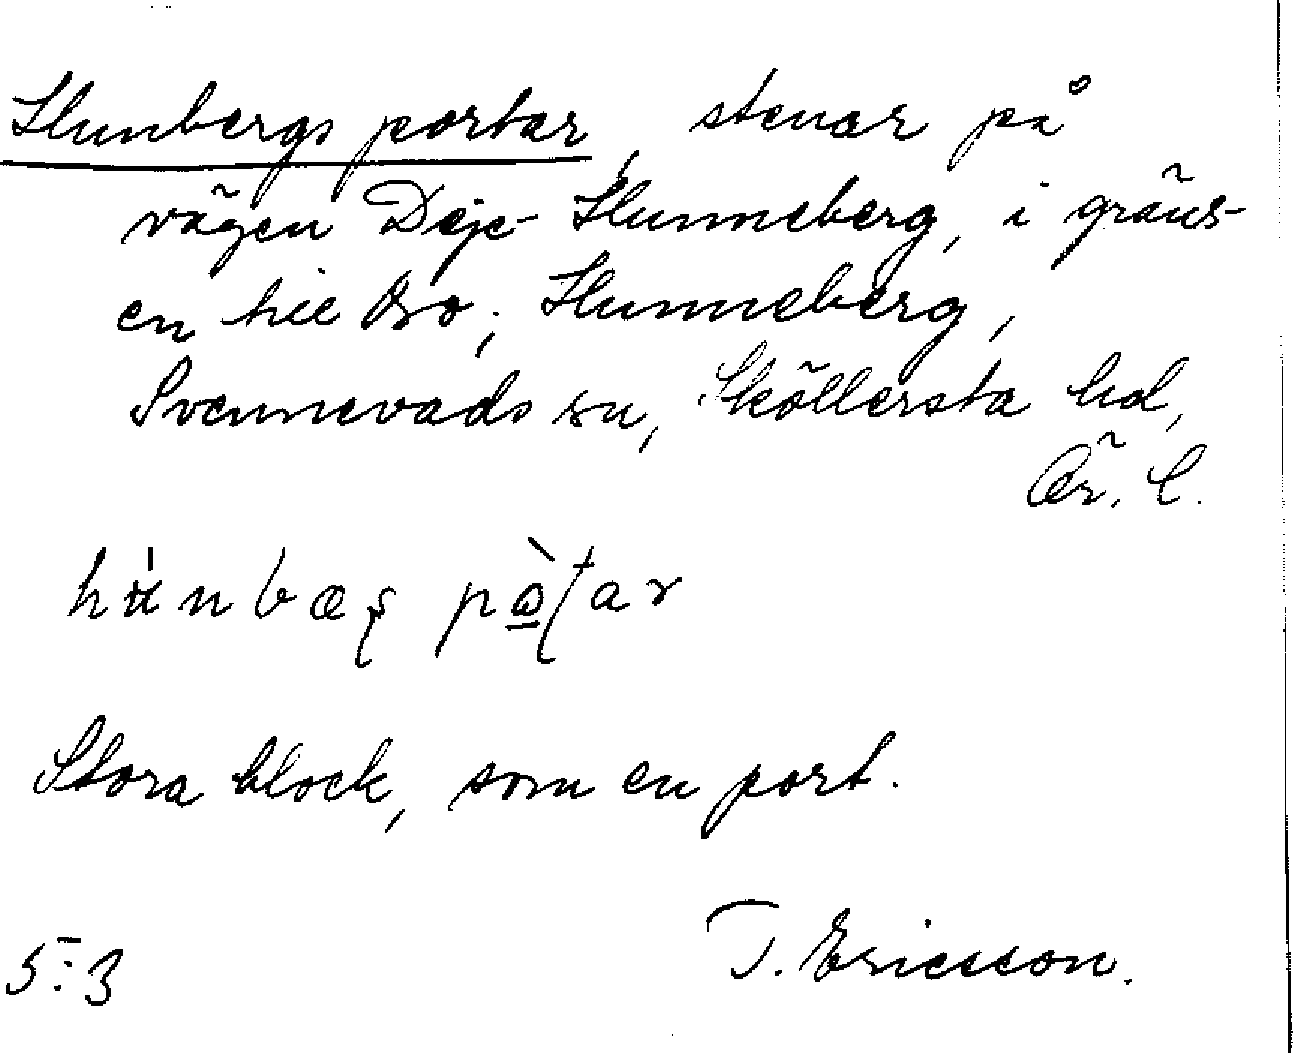 Hunbergs portar, stenar på
vägen Deje-Hunneberg, i gräns-
en till Bo; Hunneberg,
Svennevads sn, Sköllersta hd,
Ör. l.
hʉ́nbæʂ pò̱ʈar
Stora block, som en port.
5:3
T. Ericsson.